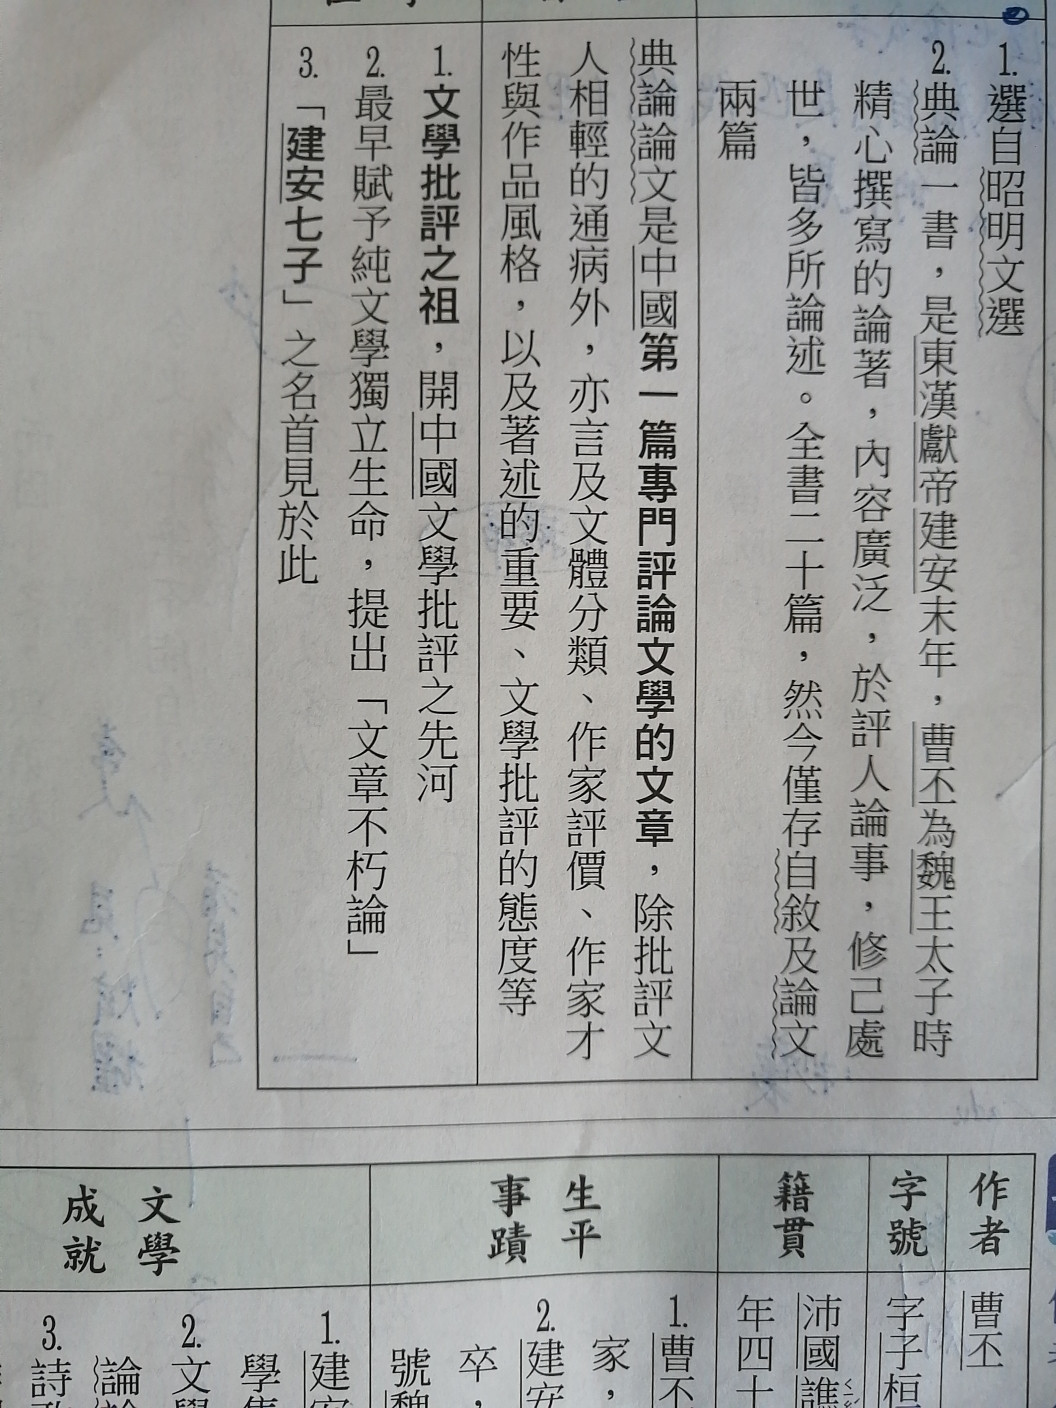 1.選自昭明文選
2.典論一書，是東漢獻帝建安末年，曹丕為魏王太子時
精心撰寫的論著，內容廣泛，於評人論事，修己處
世，皆多所論述。全書二十篇，然今僅存自敘及論文
兩篇
典論論文是中國第一篇專門評論文學的文章，除批評文
人相輕的通病外，亦言及文體分類、作家評價、作家才
性與作品風格，以及著述的重要、文學批評的態度等
1.文學批評之祖，開中國文學批評之先河
2.最早賦予純文學獨立生命，提出「文章不朽論」
3.「建安七子」之名首見於此
作者
曹丕
字號
字子桓
籍貫
沛國譙
年四十
生平
事蹟
1.曹丕
家，
2.建安
卒，
號魏
文學
成就
1.建安
學集
2.文學
論
3.詩